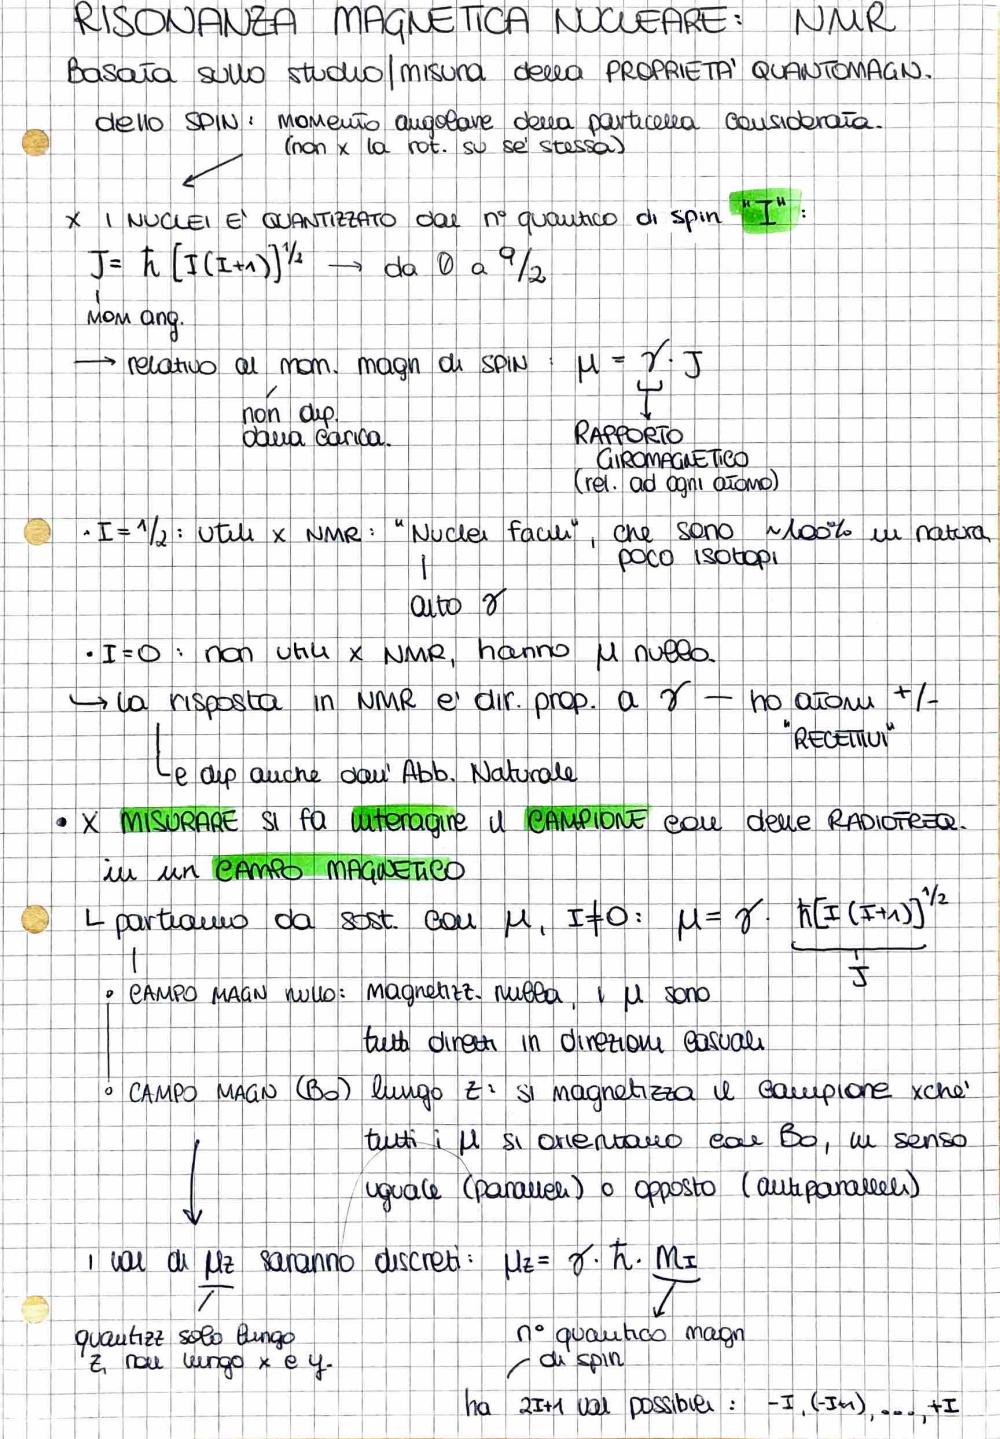 RISONANZA MAGNETICA NUCLEARE: NMR
Basata sullo studio/misura della PROPRIETA' QUANTOMAGN.
dello SPIN: momento angolare della particella considerata.
(non x la rot. su se' stessa)
x i NUCLEI E' QUANTIZZATO dal n° quantico di spin "I":
J = ħ [I(I+1)]^1/2 → da 0 a 9/2
Mom ang.
→ relativo al mom. magn di SPIN: μ = γ · J
non dip.
dalla carica.
RAPPORTO
GIROMAGNETICO
(rel. ad ogni atomo)
· I = 1/2: utili x NMR: "Nuclei facili", che sono ~100% in natura,
poco isotopi
alto γ
· I=0: non utili x NMR, hanno μ nullo.
↳ la risposta in NMR e' dir. prop. a γ — ho atomi +/-
"RECETTIVI"
e dip anche dall' Abb. Naturale
• X MISURARE si fa interagire il CAMPIONE con delle RADIOFREQ.
in un CAMPO MAGNETICO
partiamo da sost. con μ, I≠0: μ = γ · ħ[I(I+1)]^1/2
J
° CAMPO MAGN nullo: magnetizz. nulla, i μ sono
tutti diretti in direzioni casuali
° CAMPO MAGN (B0) lungo z: si magnetizza il campione xchè
tutti i μ si orientano con B0, in senso
uguale (paralleli) o opposto (antiparalleli)
i val di μz saranno discreti: μz = γ · ħ · MI
quantizz solo lungo
z, non lungo x e y.
n° quantico magn
di spin
ha 2I+1 val possibili: -I, (-I+1), ...., +I